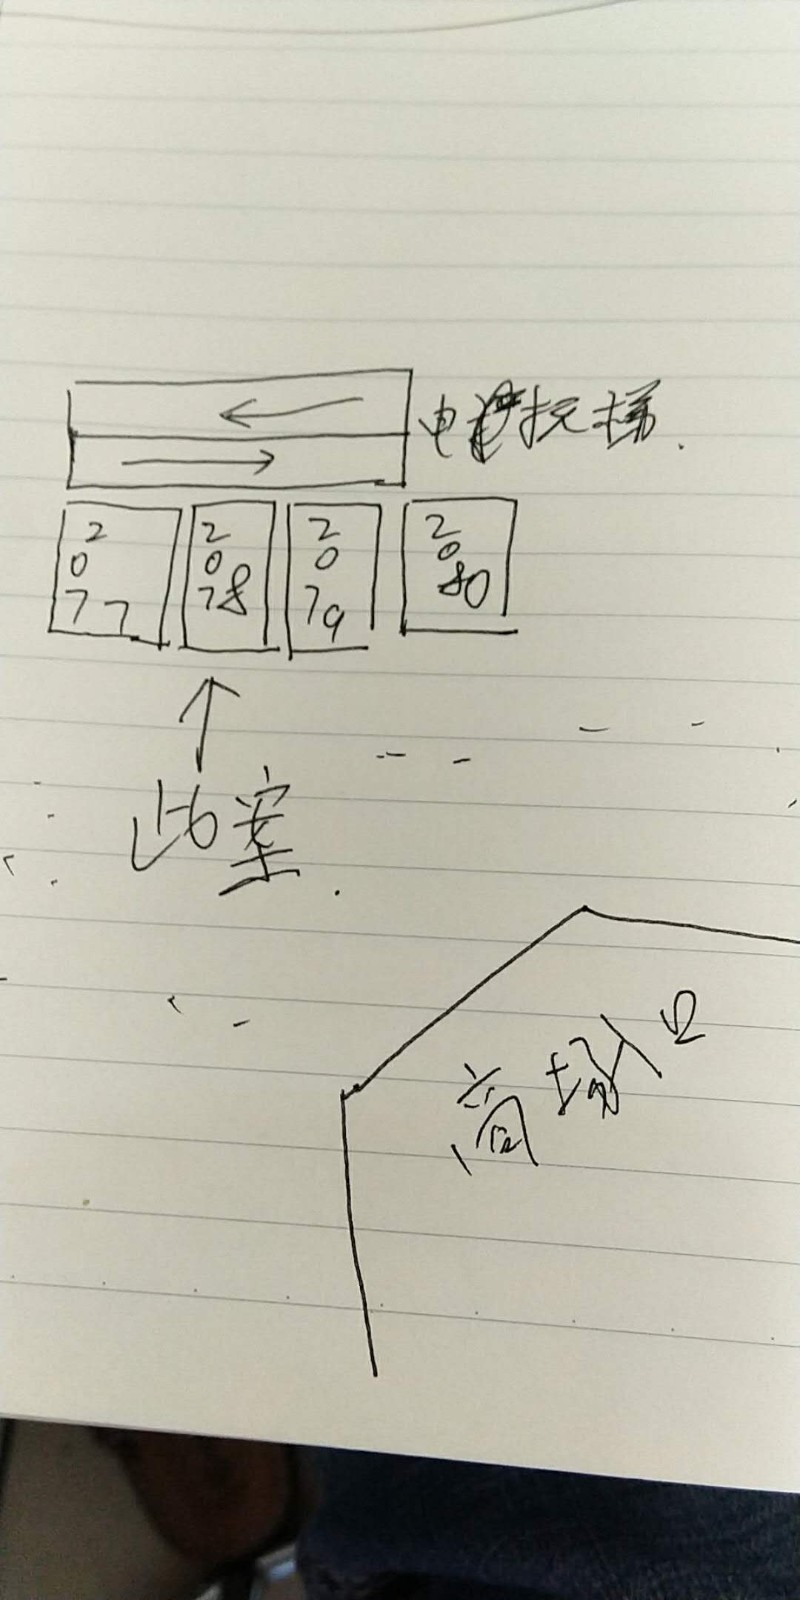 电扶梯.
2077
2078
2079
2080
此案.
商场入口